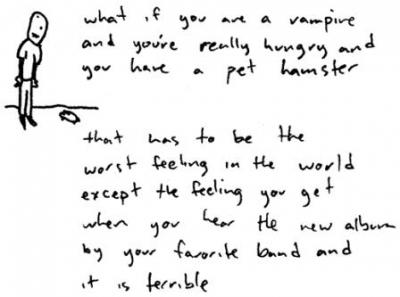 what if you are a vampire
and you're really hungry and
you have a pet hamster
that has to be the
worst feeling in the world
except the feeling you get
when you hear the new album
by your favorite band and
it is terrible